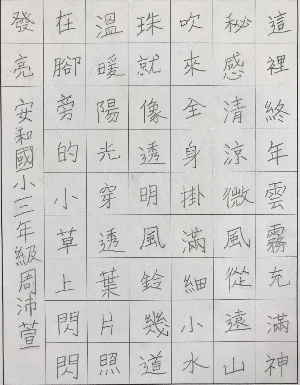 這裡終年雲霧充滿神
秘感清涼微風從遠山
吹來全身掛滿細小水
珠就像透明風鈴幾道
溫暖陽光穿透葉片照
在腳旁的小草上閃閃
發亮
安和國小三年級周沛萱